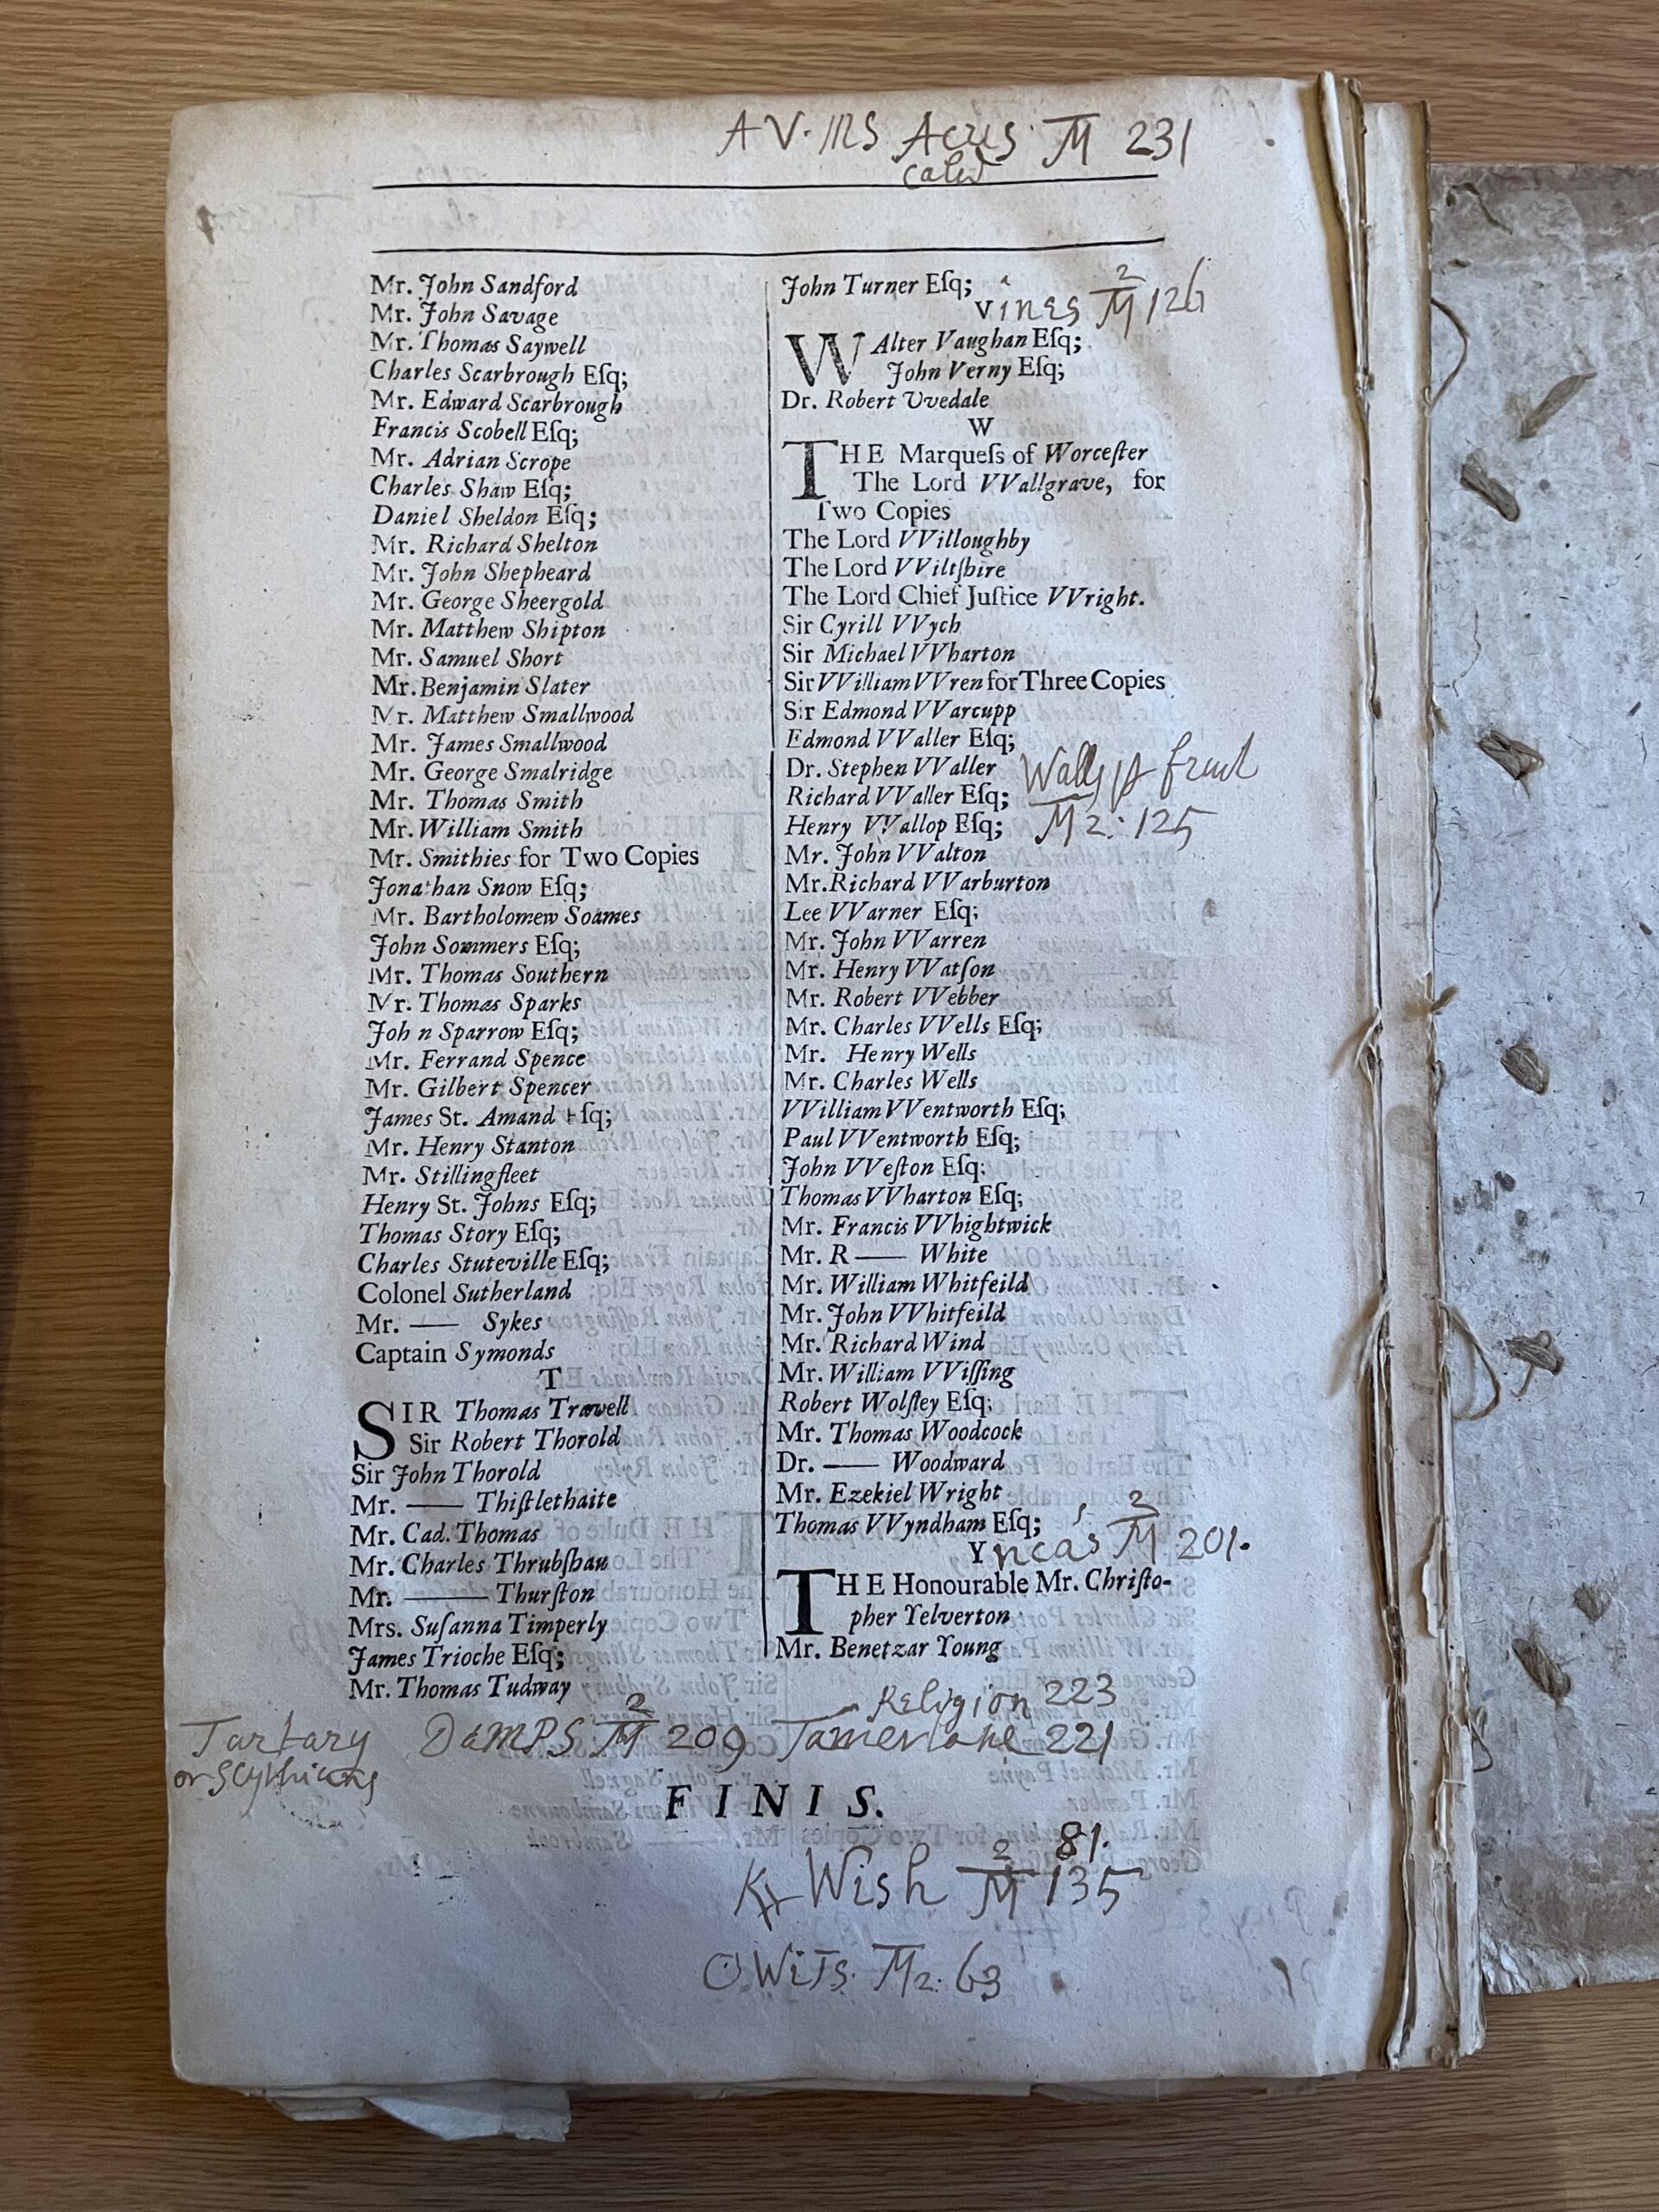 AV. MS Acus M 231
Mr. John Sandford
Mr. John Savage
Mr. Thomas Saywell
Charles Scarbrough Eſq;
Mr. Edward Scarbrough
Francis Scobell Eſq;
Mr. Adrian Scrope
Charles Shaw Eſq;
Daniel Sheldon Eſq;
Mr. Richard Shelton
Mr. John Shepheard
Mr. George Sheergold
Mr. Matthew Shipton
Mr. Samuel Short
Mr. Benjamin Slater
Mr. Matthew Smallwood
Mr. James Smallwood
Mr. George Smalridge
Mr. Thomas Smith
Mr. William Smith
Mr. Smithies for Two Copies
Jonathan Snow Eſq;
Mr. Bartholomew Soames
John Sommers Eſq;
Mr. Thomas Southern
Mr. Thomas Sparks
John Sparrow Eſq;
Mr. Ferrand Spence
Mr. Gilbert Spencer
James St. Amand Eſq;
Mr. Henry Stanton
Mr. Stillingfleet
Henry St. Johns Eſq;
Thomas Story Eſq;
Charles Stuteville Eſq;
Colonel Sutherland
Mr. —— Sykes
Captain Symonds
T
SIR Thomas Travell
Sir Robert Thorold
Sir John Thorold
Mr. —— Thiſtlethaite
Mr. Cad. Thomas
Mr. Charles Thrubſhaw
Mr. —— Thurſton
Mrs. Suſanna Timperly
James Trioche Eſq;
Mr. Thomas Tudway
John Turner Eſq;
Vines M 2 126
WAlter Vaughan Eſq;
John Verny Eſq;
Dr. Robert Uvedale
W
THE Marqueſs of Worceſter
The Lord VVallgrave, for
Two Copies
The Lord VVilloughby
The Lord VViltſhire
The Lord Chief Juſtice VVright.
Sir Cyrill VVych
Sir Michael VVharton
Sir VVilliam VVren for Three Copies
Sir Edmond VVarcupp
Edmond VValler Eſq;
Dr. Stephen VValler
Richard VValler Eſq;
Henry VVallop Eſq;
M 2: 125
Mr. John VValton
Mr. Richard VVarburton
Lee VVarner Eſq;
Mr. John VVarren
Mr. Henry VVatſon
Mr. Robert VVebber
Mr. Charles VVells Eſq;
Mr. Henry Wells
Mr. Charles Wells
VVilliam VVentworth Eſq;
Paul VVentworth Eſq;
John VVeſton Eſq;
Thomas VVharton Eſq;
Mr. Francis VVhightwick
Mr. R —— White
Mr. William Whitfeild
Mr. John VVhitfeild
Mr. Richard Wind
Mr. William VViſſing
Robert Wolſley Eſq;
Mr. Thomas Woodcock
Dr. —— Woodward
Mr. Ezekiel Wright
Thomas VVyndham Eſq;
Yncas M 2 201.
THE Honourable Mr. Chriſto-
pher Yelverton
Mr. Benetzar Young
Religion 223
Tartary DaMPS M 2 209 Tamerlane 221
or Scythians
FINIS.
81.
Wish M 2 135
Wits. M 2: 63